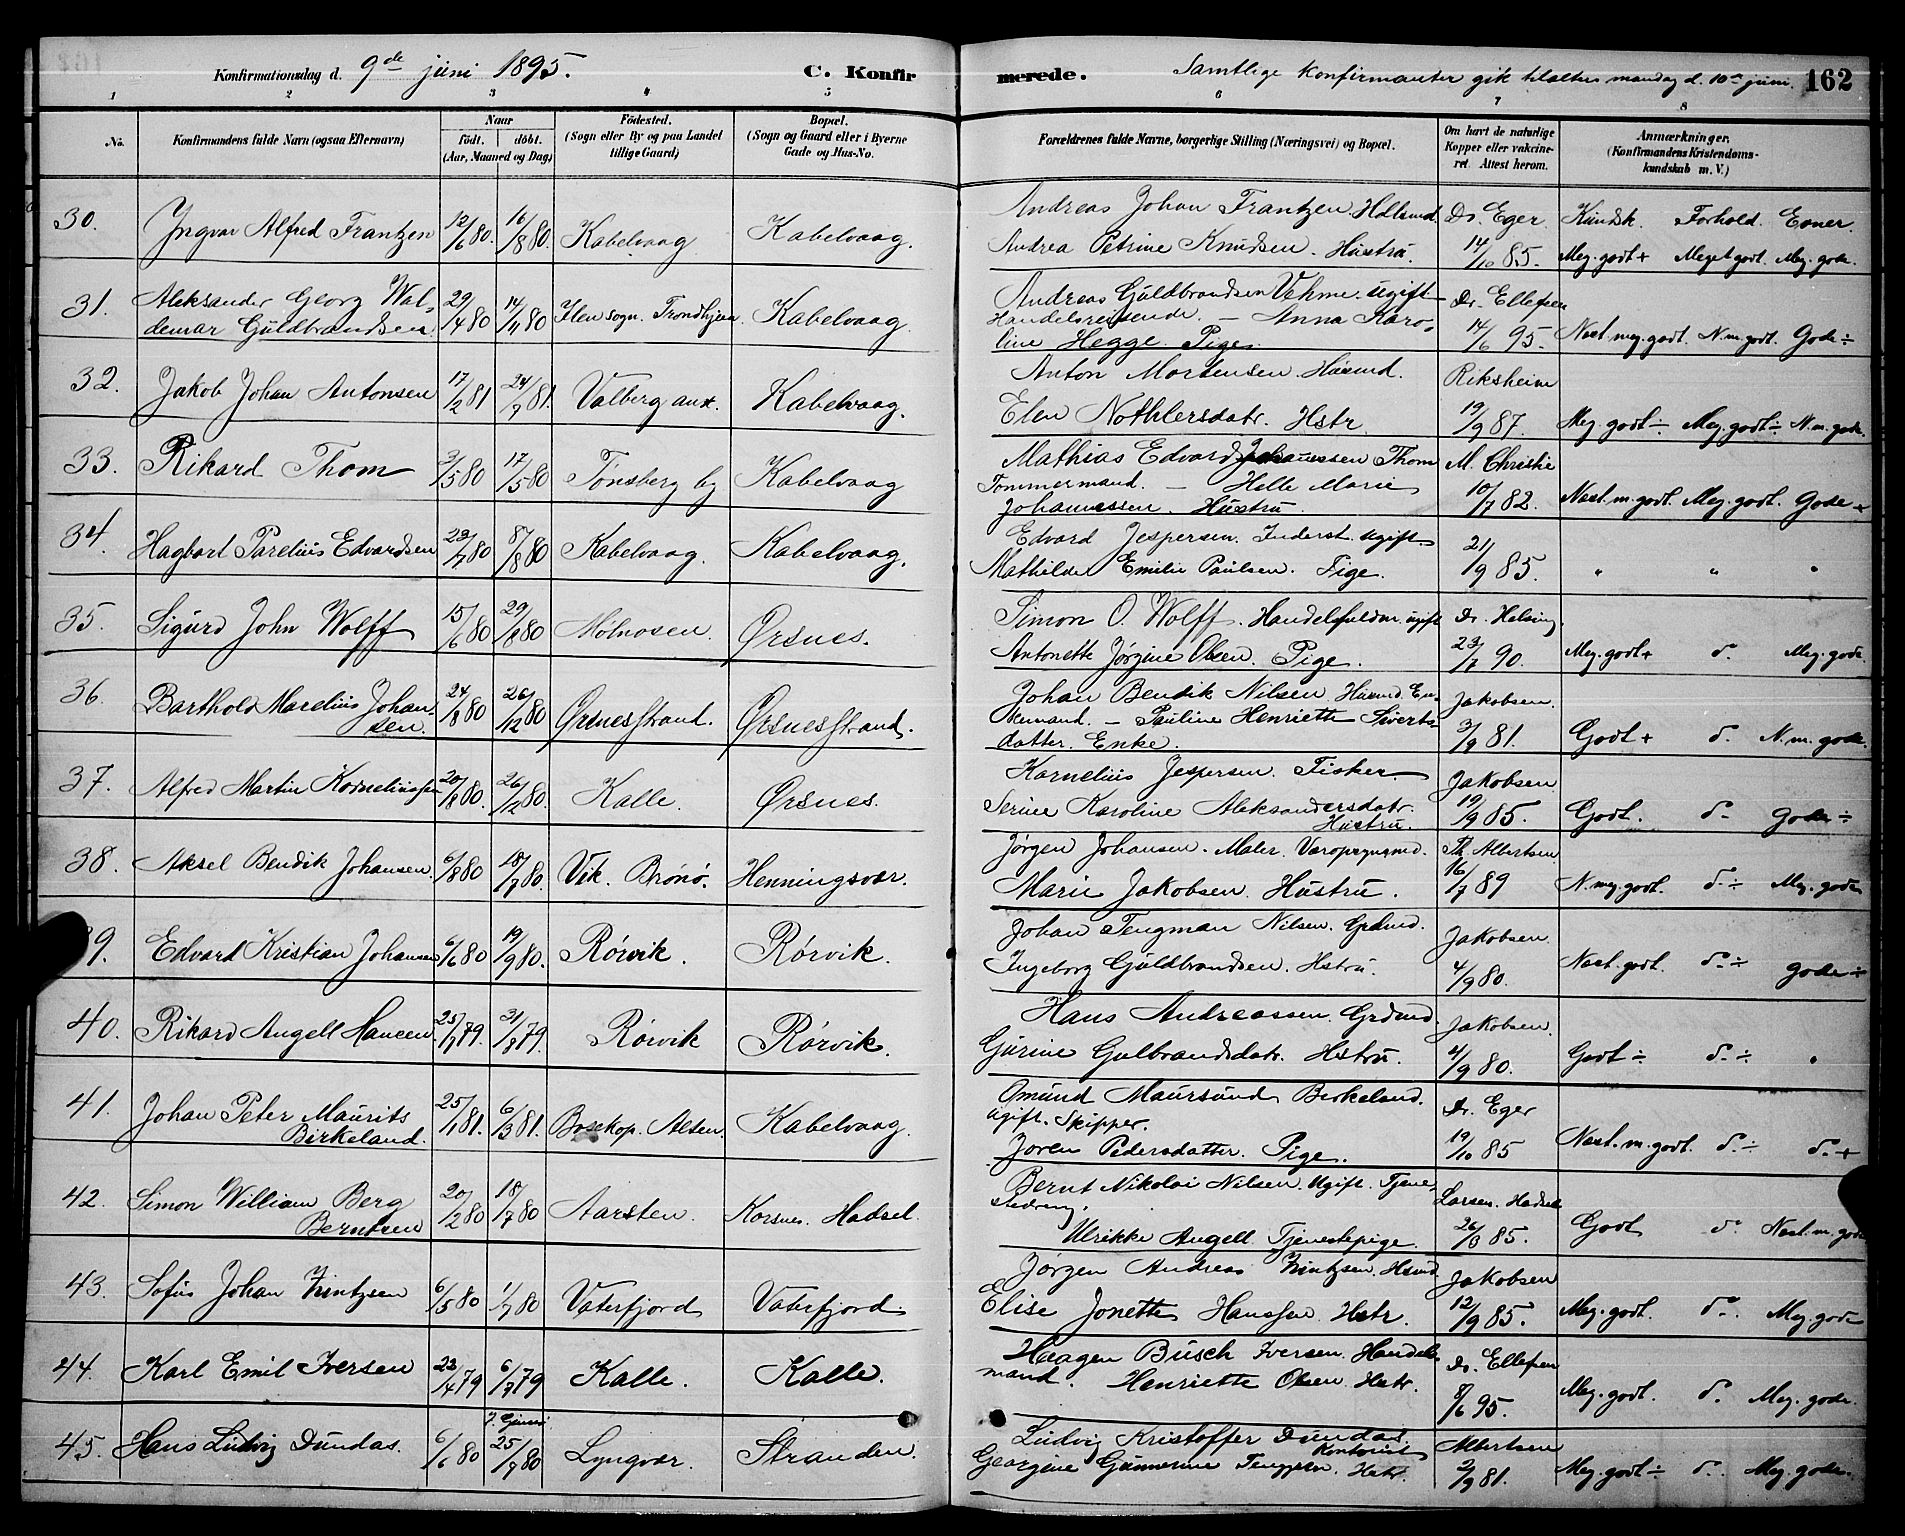 Konfirmationsdag d. 9de juni 1895. C. Konfirmerede. Samtlige Konfirmanter gik tilalters mandag d. 10de juni. 162
1 2 3 4 5 6 7 8
No. Konfirmandens fulde Navn (ogsaa Efternavn) Naar födt. döbt. (Aar, Maaned og Dag) Födested. (Sogn eller By og paa Landet tillige Gaard) Bopæl. (Sogn og Gaard eller i Byerne Gade og Hus-No. Forældrenes fulde Navne, borgerlige Stilling (Næringsvei) og Bopæl. Om havt de naturlige Kopper eller vakcineret Attest herom. Anmærkninger, (Konfirmandens Kristendomskundskab m. V.)
30. Yngvar Alfred Frantzen 12/6 80. 16/8 80. Kabelvaag Kabelvaag. Andreas Johan Frantzen. Dr. Eger. Kundsk. Forhold. Evner.
Andrea Petrine Knudsen. Hustru. 14/10 85. Meg. godt + Meget godt. Meg. gode.
31. Aleksander Georg Waldemar Guldbrandsen 29/4 80 14/11 80 Ilen sogn. Trondhjem Kabelvaag Andreas Guldbrandsen Vehme. ugift Dr. Ellefsen
Handelsreisende. — Anna Karoline Hegge. Pige. 14/6 95. Næst. meg. godt. N. m. godt. Gode ÷
32. Jakob Johan Antonsen 17/2 81 24/7 81. Valberg anx. Kabelvaag. Anton Mortensen. Husmd. Riksheim
Elen Nothlersdatr. Hstr 19/9 87. Meg. godt ÷. Meg. godt ÷ N. m. gode.
33. Rikard Thom 3/5 80 17/5 80 Tønsberg by Kabelvaag Mathias Edvard Johannessen Thom M. Christie
Tømmermand. — Helle Marie Johannessen. Hustru. 10/7 82. Næst. m. godt. Meg. godt. Gode +
34. Hagbart Parelius Edvardsen 8/8 80 Kabelvaag. Kabelvaag. Edvard Jespersen. Inderst. ugift. 21/9 85.
Mathilde Emilie Paulsen. Pige. " " "
35. Sigurd John Wolff 15/6 80 29/8 80 Molnosen. Ørsnes. Simon O. Wolff. ugift Dr. Helsing.
Antonette Jørgine Olsen. Pige. 23/7 90. Meg. godt + do. Meg. gode.
36. Barthold Marelius Johansen. 24/8 80 26/12 80 Ørsnesstrand. Ørsnesstrand. Johan Bendik Nilsen Husmd. Enkemand. — Pauline Henriette Sivertsdatter. Enke. Jakobsen. 3/9 81. Godt + do. N. m. gode.
37. Alfred Martin Korneliussen 20/8 80. 26/12 80. Kalle. Ørsnes. Kornelius Jespersen. Fisker Jakobsen
Serine Karoline Aleksandersdatr. Hustru. 19/9 85. Godt. do. gode ÷
38. Aksel Bendik Johansen. 6/8 80 Vik. Brønø. Henningsvær. Jørgen Johansen. Maler. Th. Albertsen
Marie Jakobsen. Hustru. 16/7 89 N. meg. godt. do ÷ Meg. gode
39. Edvard Kristian Johansen 6/6 80 19/9 80. Rørvik. Rørvik. Johan Tengman Nilsen. Grdmd. Jakobsen.
Ingeborg Guldbrandsen. Hstru. 4/9 80. Næst. godt. do. ÷ gode ÷
40. Rikard Angell Hansen. 31/8 79. Rørvik Rørvik. Hans Andreassen. Grdmd. Jakobsen.
Gurine Gulbrandsdatr. Hstru. 4/9 80. Godt ÷ do. ÷ "
41. Johan Peter Maurits Birkeland. 25/1 81. 6/3 81. Bosekop. Alten. Kabelvaag. Omund Maursund Birkeland. Dr. Eger
ugift. Skipper.
Joren Pedersdatter. Pige. 19/10 85 Næst. m. godt. do. ÷ do. +
42. Simon William Berg Berntsen 20/2 80 18/7 80 Aarsten. Korsnes. Hadsel. Bernt Nikolai Nilsen. Ugift. Tjenestedreng. Larsen. Hadsel
Ulrikke Angell. Tjenestepige. 85. Godt do Næst. m. gode
43. Sofus Johan Zintzsen 6/5 80 1/7 80 Vaterfjord Vaterfjord. Jørgen Andreas Zintzsen. Hsmd. Jakobsen
Elise Jonette Hanssen. Hstr. 12/9 85. Meg. godt. do. Meg. gode
44. Karl Emil Iversen 23/4 79 6/7 79 Kalle. Kalle. Haagen Busch Iversen. Handelsmand. Dr. Ellefsen
Henriette Olsen. Hstr. 8/6 95. Meg. godt. do. Meg. gode.
45. Hans Ludvig Dundas. 6/6 80 25/7 80 Lyngvær. Stranden. Ludvig Kristoffer Dundas. Kontorist Albertsen
Georgine Gunnerine Hstr. 2/9 81. Meg. godt ÷ do. Meg. gode.